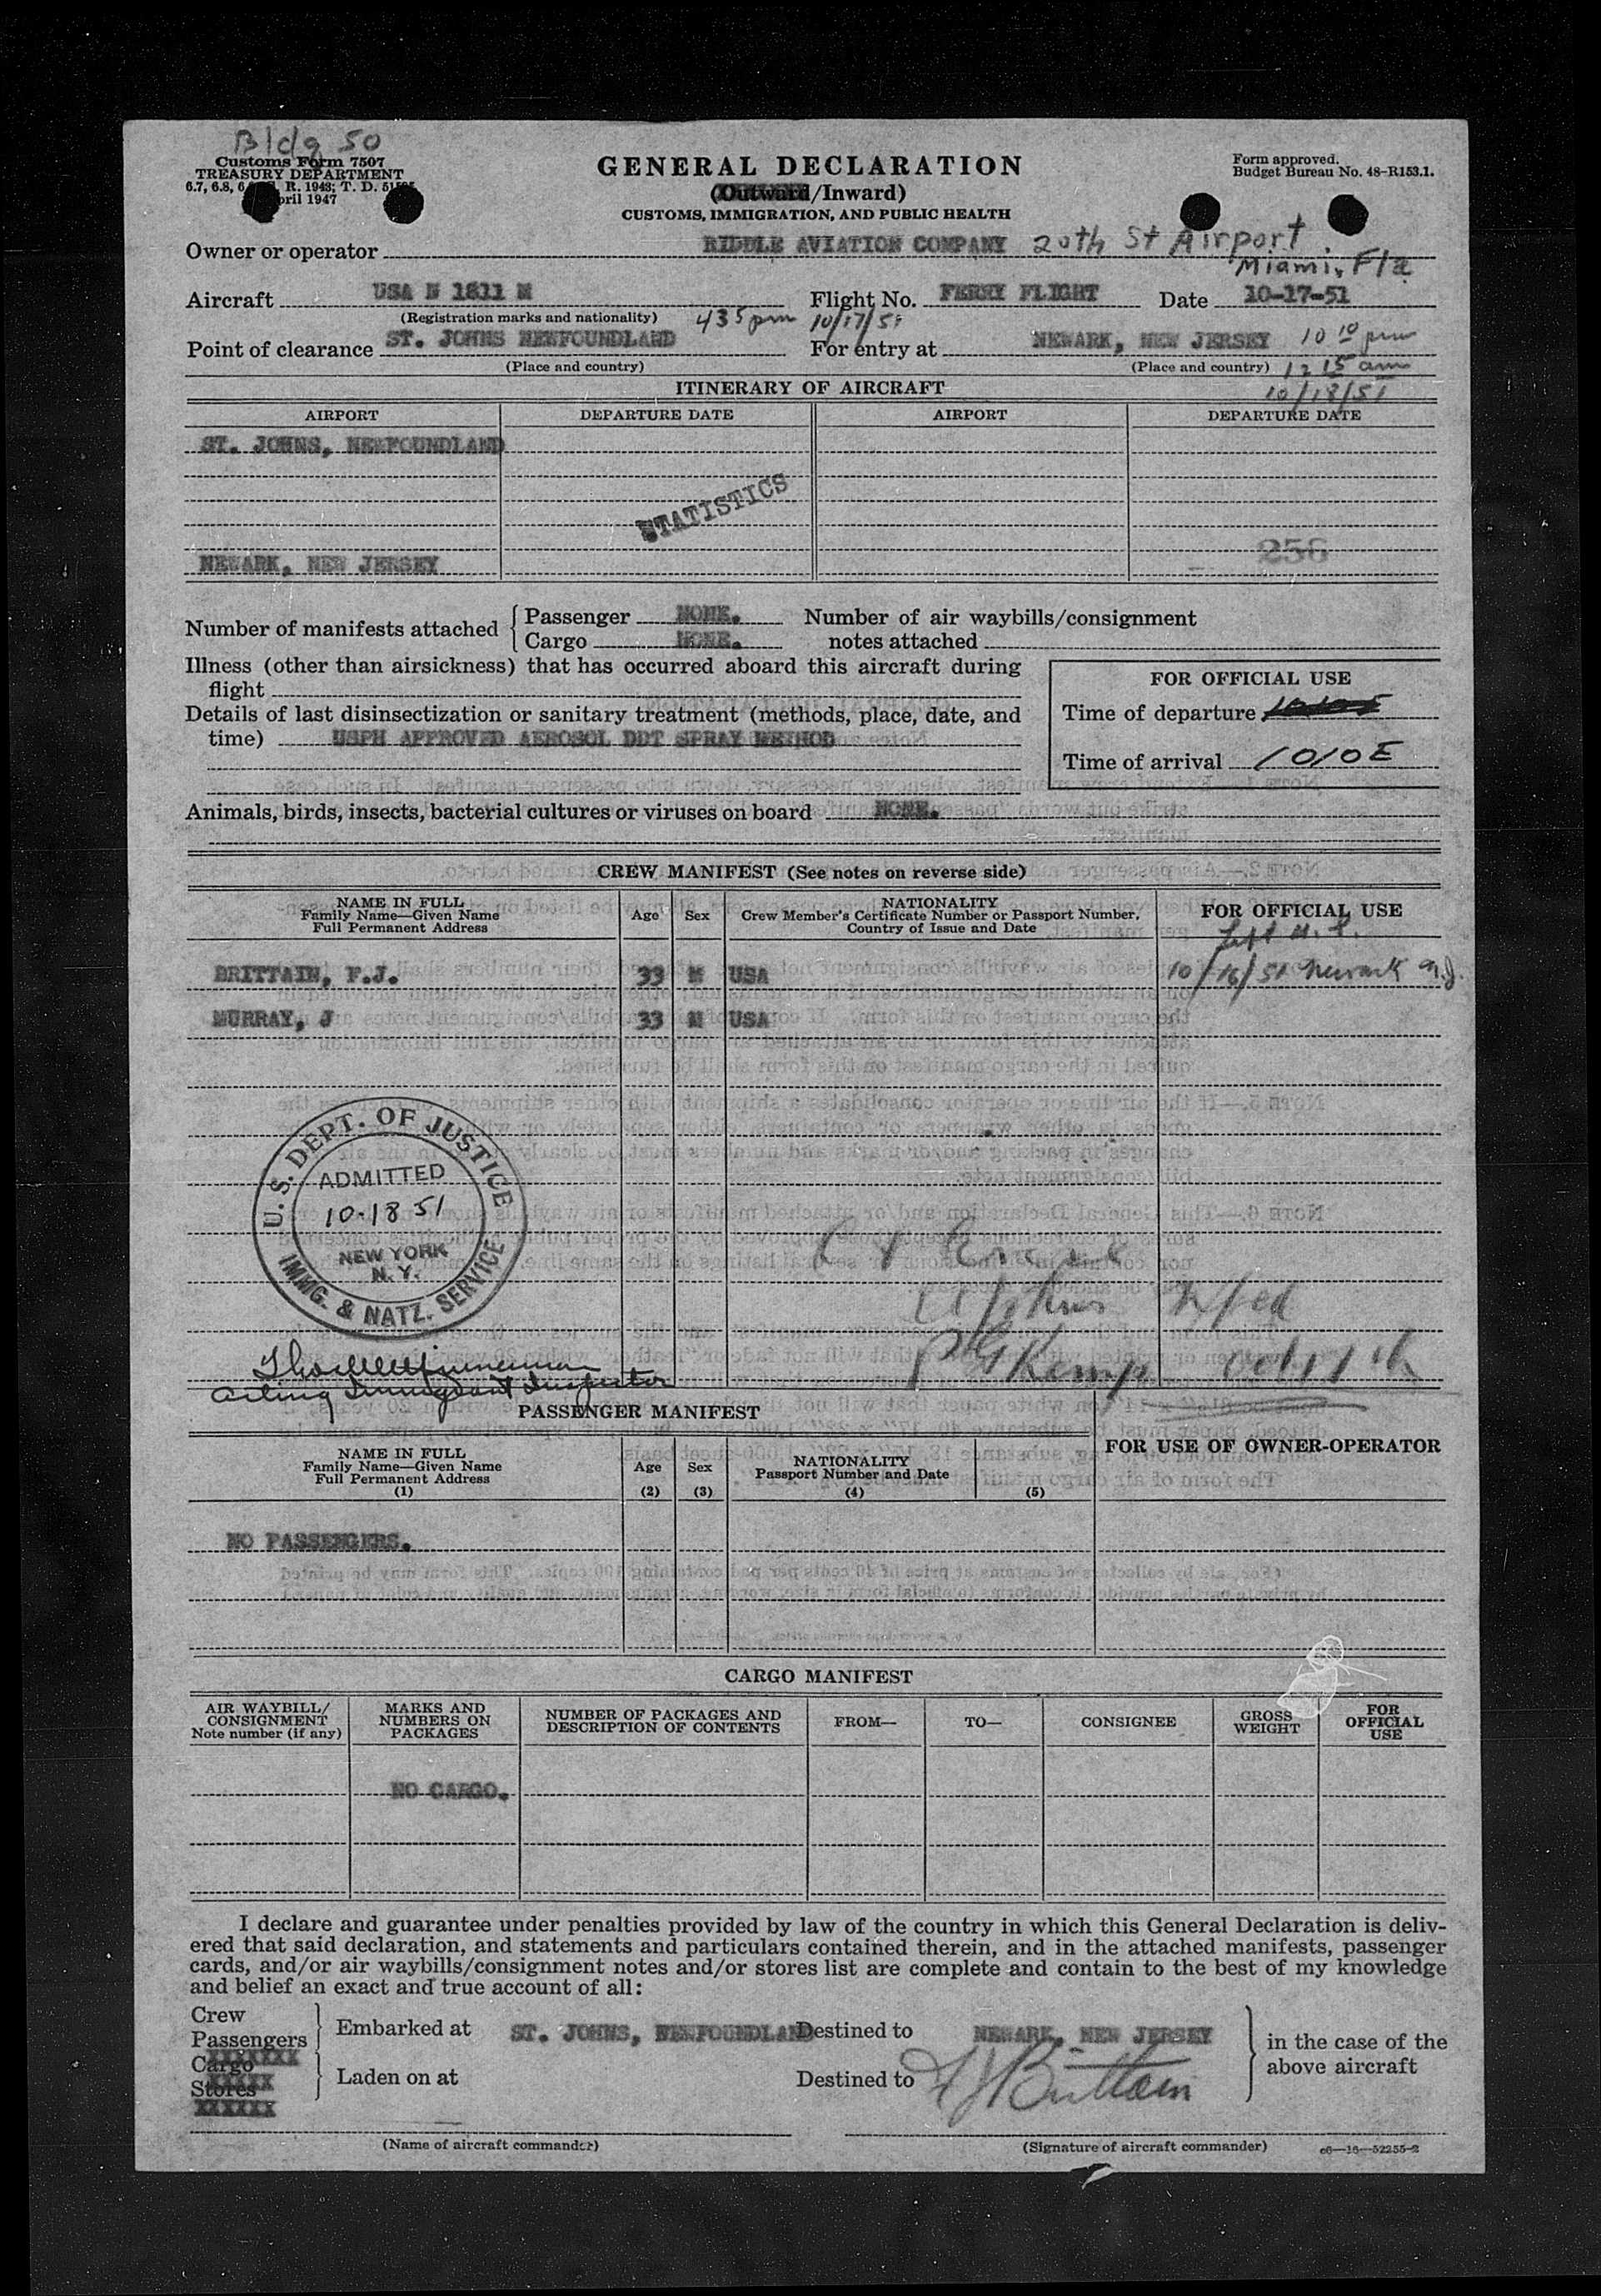 Bldg 50
Customs Form 7507
TREASURY DEPARTMENT
6.7, 6.8, R. 1943; T. D.
April 1947
GENERAL DECLARATION
(Outward/Inward)
CUSTOMS, IMMIGRATION, AND PUBLIC HEALTH
Form approved.
Budget Bureau No. 48-R153.1.
Owner or operator RIDDLE AVIATION COMPANY 20th St Airport
Miami, Fla
Aircraft USA N 1811 M Flight No. FERRY FLIGHT Date 10-17-51
(Registration marks and nationality) 435 pm 10/17/51
Point of clearance ST. JOHNS NEWFOUNDLAND For entry at NEWARK, NEW JERSEY 10 10 pm
(Place and country) (Place and country) 12 15 am
ITINERARY OF AIRCRAFT 10/18/51
AIRPORT DEPARTURE DATE AIRPORT DEPARTURE DATE
ST. JOHNS, NEWFOUNDLAND
STATISTICS
256
NEWARK, NEW JERSEY
Number of manifests attached Passenger NONE. Number of air waybills/consignment
Cargo NONE. notes attached
Illness (other than airsickness) that has occurred aboard this aircraft during
flight
FOR OFFICIAL USE
Details of last disinsectization or sanitary treatment (methods, place, date, and
time) USPH APPROVED AEROSOL DDT SPRAY METHOD
Time of departure
Time of arrival 1010E
Animals, birds, insects, bacterial cultures or viruses on board NONE.
CREW MANIFEST (See notes on reverse side)
NAME IN FULL
Family Name—Given Name
Full Permanent Address
Age Sex
NATIONALITY
Crew Member's Certificate Number or Passport Number,
Country of Issue and Date
FOR OFFICIAL USE
Left U.S.
BRITTAIN, F.J. 33 M USA 10/16/51 Newark N.J.
MURRAY, J 33 M USA
U.S. DEPT. OF JUSTICE
ADMITTED
10-18 51
NEW YORK
N.Y.
IMMG. & NATZ. SERVICE
St Johns Nfld
Kemp Oct 17th
Acting Immigrant Inspector
PASSENGER MANIFEST
NAME IN FULL
Family Name—Given Name
Full Permanent Address
(1)
Age
(2)
Sex
(3)
NATIONALITY
Passport Number and Date
(4) (5)
FOR USE OF OWNER-OPERATOR
NO PASSENGERS.
CARGO MANIFEST
AIR WAYBILL/
CONSIGNMENT
Note number (if any)
MARKS AND
NUMBERS ON
PACKAGES
NUMBER OF PACKAGES AND
DESCRIPTION OF CONTENTS
FROM— TO— CONSIGNEE
GROSS
WEIGHT
FOR
OFFICIAL
USE
NO CARGO.
I declare and guarantee under penalties provided by law of the country in which this General Declaration is deliv-
ered that said declaration, and statements and particulars contained therein, and in the attached manifests, passenger
cards, and/or air waybills/consignment notes and/or stores list are complete and contain to the best of my knowledge
and belief an exact and true account of all:
Crew
Passengers
XXXXXXX
Cargo
XXXXX
Stores
XXXXXX
Embarked at ST. JOHNS, NEWFOUNDLAND Destined to NEWARK, NEW JERSEY
Laden on at Destined to
in the case of the
above aircraft
F J Brittain
(Name of aircraft commander) (Signature of aircraft commander) c6—16—52255-2